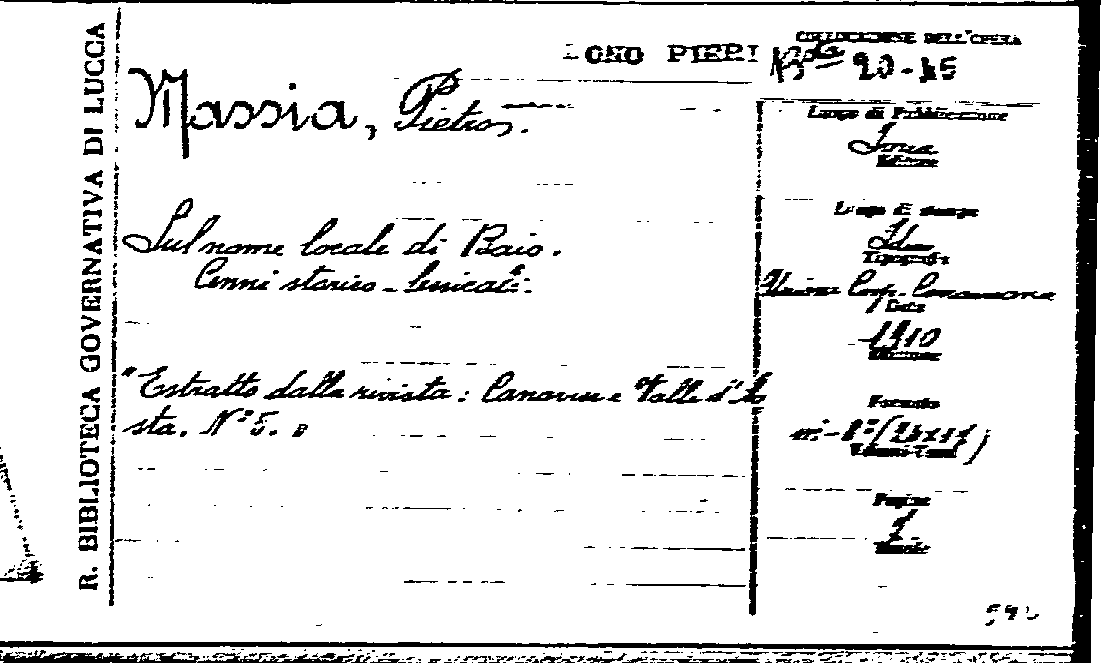 R. BIBLIOTECA GOVERNATIVA DI LUCCA
ONO PIERI
COLLOCAZIONE DELL'OPERA
Bta 20-15
Massia, Pietro.
Luogo di Pubblicazione
Ivrea
Editore
Sul nome locale di Baio.
Cenni storico-lessicali.
Luogo di stampa
Id
Tipografia
Unione Corp. Canavesana
Data
1910
Edizione
"Estratto dalla rivista: Canavese e Valle d'Ao
sta. N° 5. "
Formato
in-8°
Volumi-Tomi
Pagine